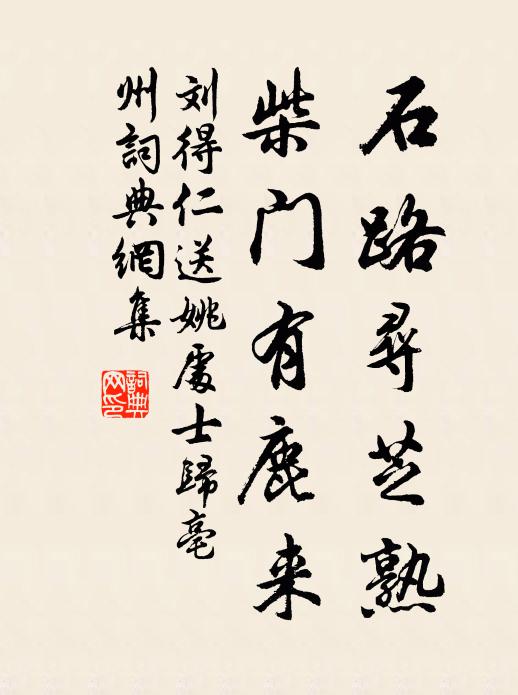 石路尋芝熟
柴门有鹿来
刘得仁送姚處士歸亳
州詞典網集
詞典
网印